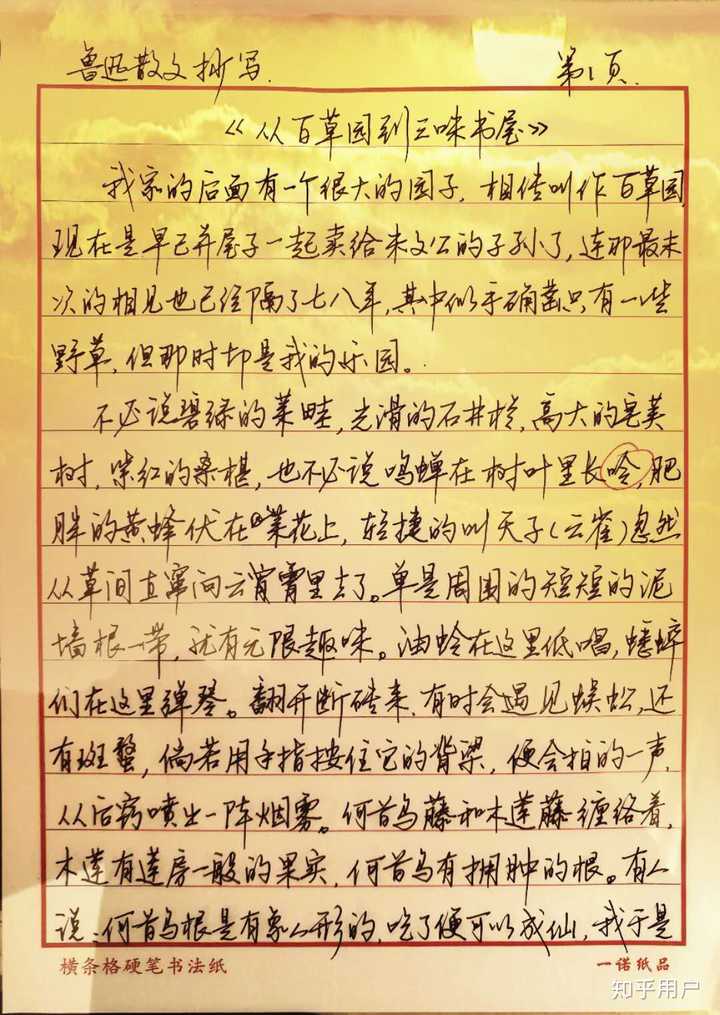 鲁迅散文抄写.
第1页.
《从百草园到三味书屋》
我家的后面有一个很大的园子，相传叫作百草园，
现在是早已并屋子一起卖给朱文公的子孙了，连那最末
次的相见也已经隔了七八年，其中似乎确凿只有一些
野草，但那时却是我的乐园。
不必说碧绿的菜畦，光滑的石井栏，高大的皂荚
树，紫红的桑椹，也不必说鸣蝉在树叶里长吟，肥
胖的黄蜂伏在菜花上，轻捷的叫天子(云雀)忽然
从草间直窜向云霄里去了。单是周围的短短的泥
墙根一带，就有无限趣味。油蛉在这里低唱，蟋蟀
们在这里弹琴。翻开断砖来，有时会遇见蜈蚣，还
有斑蝥，倘若用手指按住它的背梁，便会拍的一声，
从后窍喷出一阵烟雾。何首乌藤和木莲藤缠络着，
木莲有莲房一般的果实，何首乌有拥肿的根。有人
说：何首乌根是有象人形的，吃了便可以成仙，我于是
横条格硬笔书法纸
一诺纸品
知乎用户